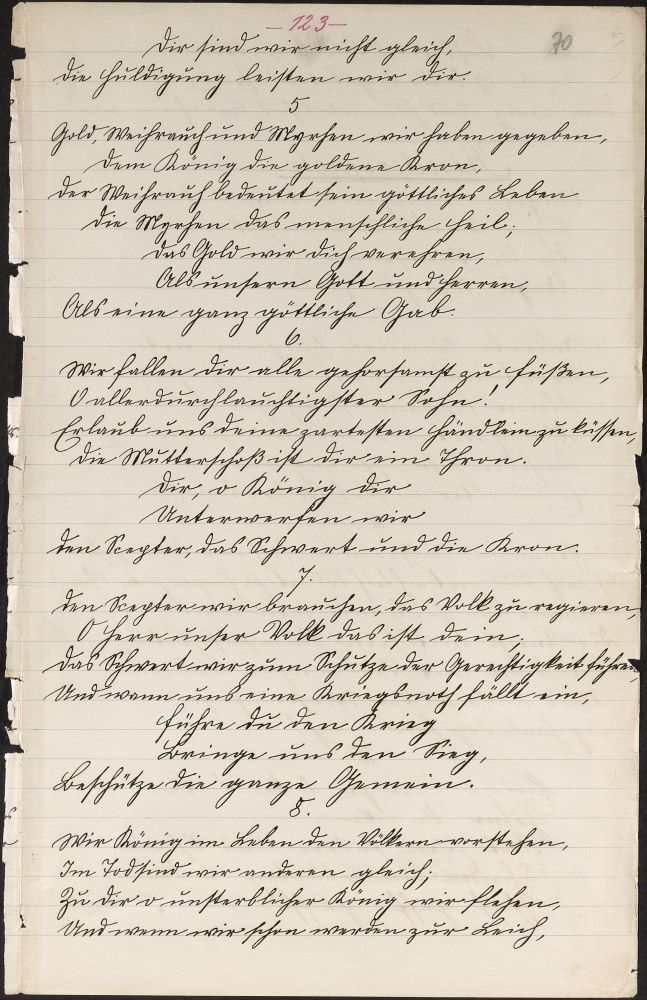 - 123 -
70
Dir sind wir nicht gleich,
Die Huldigung leisten wir Dir.
5
Gold, Weihrauch und Myrhen wir haben gegeben,
Dem König die goldene Kron,
Der Weihrauch bedeutet sein göttliches Leben
Die Myrhen das menschliche Heil;
Das Gold wir dich verehren,
Als unsern Gott und Herren,
Als eine ganz göttliche Gab.
6.
Wir fallen dir alle gehorsamst zu Füßen,
O allerdurchlauchtigster Sohn!
Erlaub uns deine zartesten Händlein zu küssen,
Die Mutterschoß ist dir ein Thron.
Dir, o König dir
Unterwerfen wir
Den Scepter, das Schwert und die Kron.
7.
Den Scepter wir brauchen, das Volk zu regieren,
O Herr unser Volk das ist dein;
Das Schwert wir zum Schutze der Gerechtigkeit führen,
Und wann uns eine Kriegsnoth fällt ein,
Führe du den Krieg
Bringe uns den Sieg,
Beschütze die ganze Gemein.
8.
Wir König im Leben den Völkern vorstehen,
Im Tod sind wir anderen gleich;
Zu dir o unsterblicher König wir flehen,
Und wenn wir schon werden zur Leich,